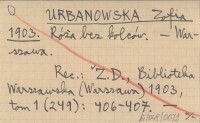 URBANOWSKA Zofia
1903. Róża bez kolców. — War-
szawa.
Rec.: Z.D., Biblioteka
Warszawska (Warszawa) 1903,
tom 1 (249): 406-407. —